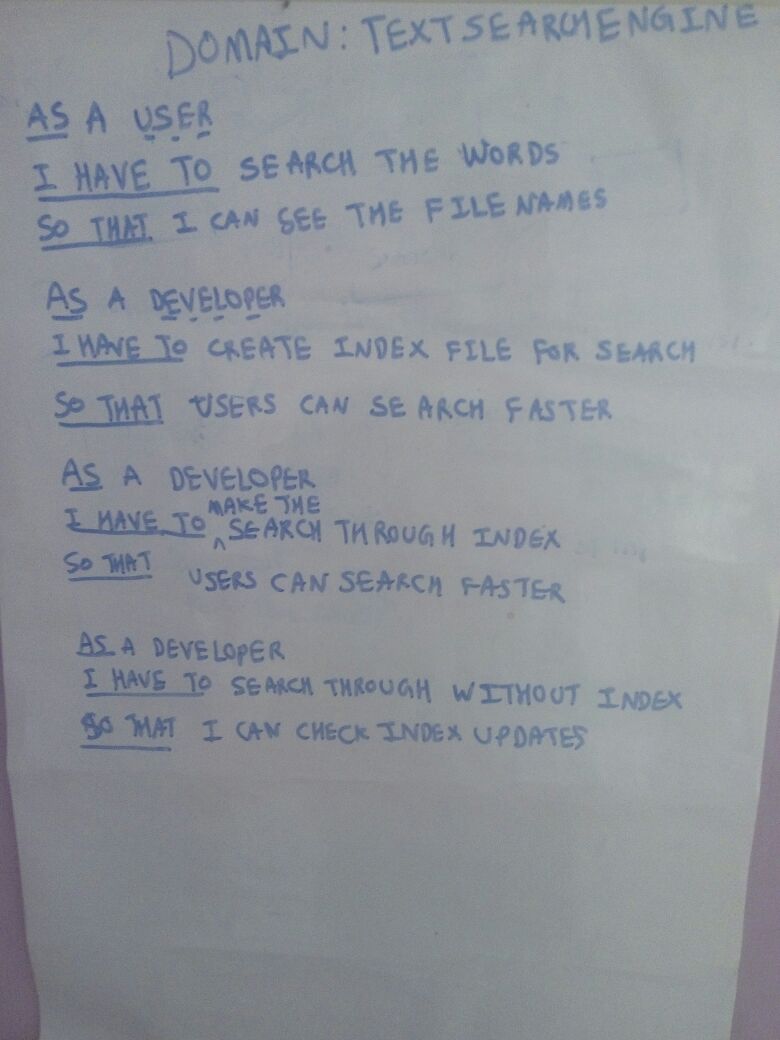 DOMAIN: TEXTSEARCHENGINE
AS A USER
I HAVE TO SEARCH THE WORDS
SO THAT I CAN SEE THE FILE NAMES
AS A DEVELOPER
I HAVE TO CREATE INDEX FILE FOR SEARCH
SO THAT USERS CAN SEARCH FASTER
AS A DEVELOPER
MAKE THE
I HAVE TO ^ SEARCH THROUGH INDEX
SO THAT USERS CAN SEARCH FASTER
AS A DEVELOPER
I HAVE TO SEARCH THROUGH WITHOUT INDEX
SO THAT I CAN CHECK INDEX UPDATES